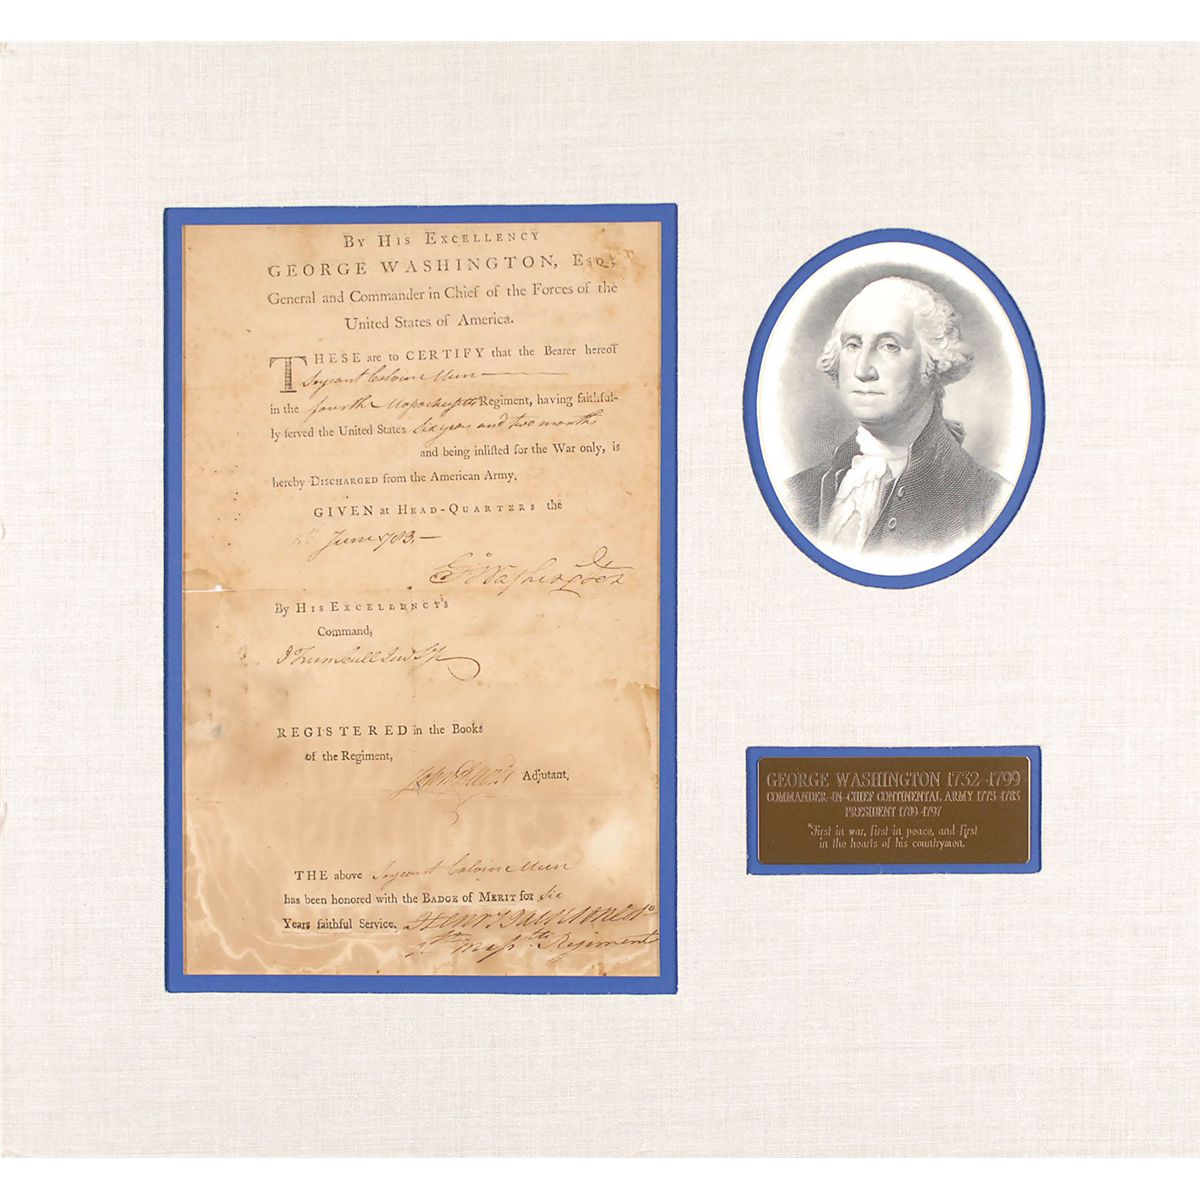 By His Excellency
GEORGE WASHINGTON, Esq;
General and Commander in Chief of the Forces of the
United States of America.
THESE are to CERTIFY that the Bearer hereof
Serjeant Calvin Munn
in the fourth Massachusetts Regiment, having faithful-
ly ſerved the United States six years and two months
and being inliſted for the War only, is
hereby Discharged from the American Army.
GIVEN at Head-Quarters the
June 1783.
Go Washington
By His Excellency's
Command,
J Trumbull Jun Sy
REGISTERED in the Books
of the Regiment,
John Davis Adjutant,
THE above Serjeant Calvin Munn
has been honored with the Badge of Merit for six
Years faithful Service. Henry Jackson Colo
Massts Regiment
GEORGE WASHINGTON 1732-1799
COMMANDER-IN-CHIEF CONTINENTAL ARMY 1775-1783
PRESIDENT 1789-1797
"First in war, first in peace, and first
in the hearts of his countrymen."